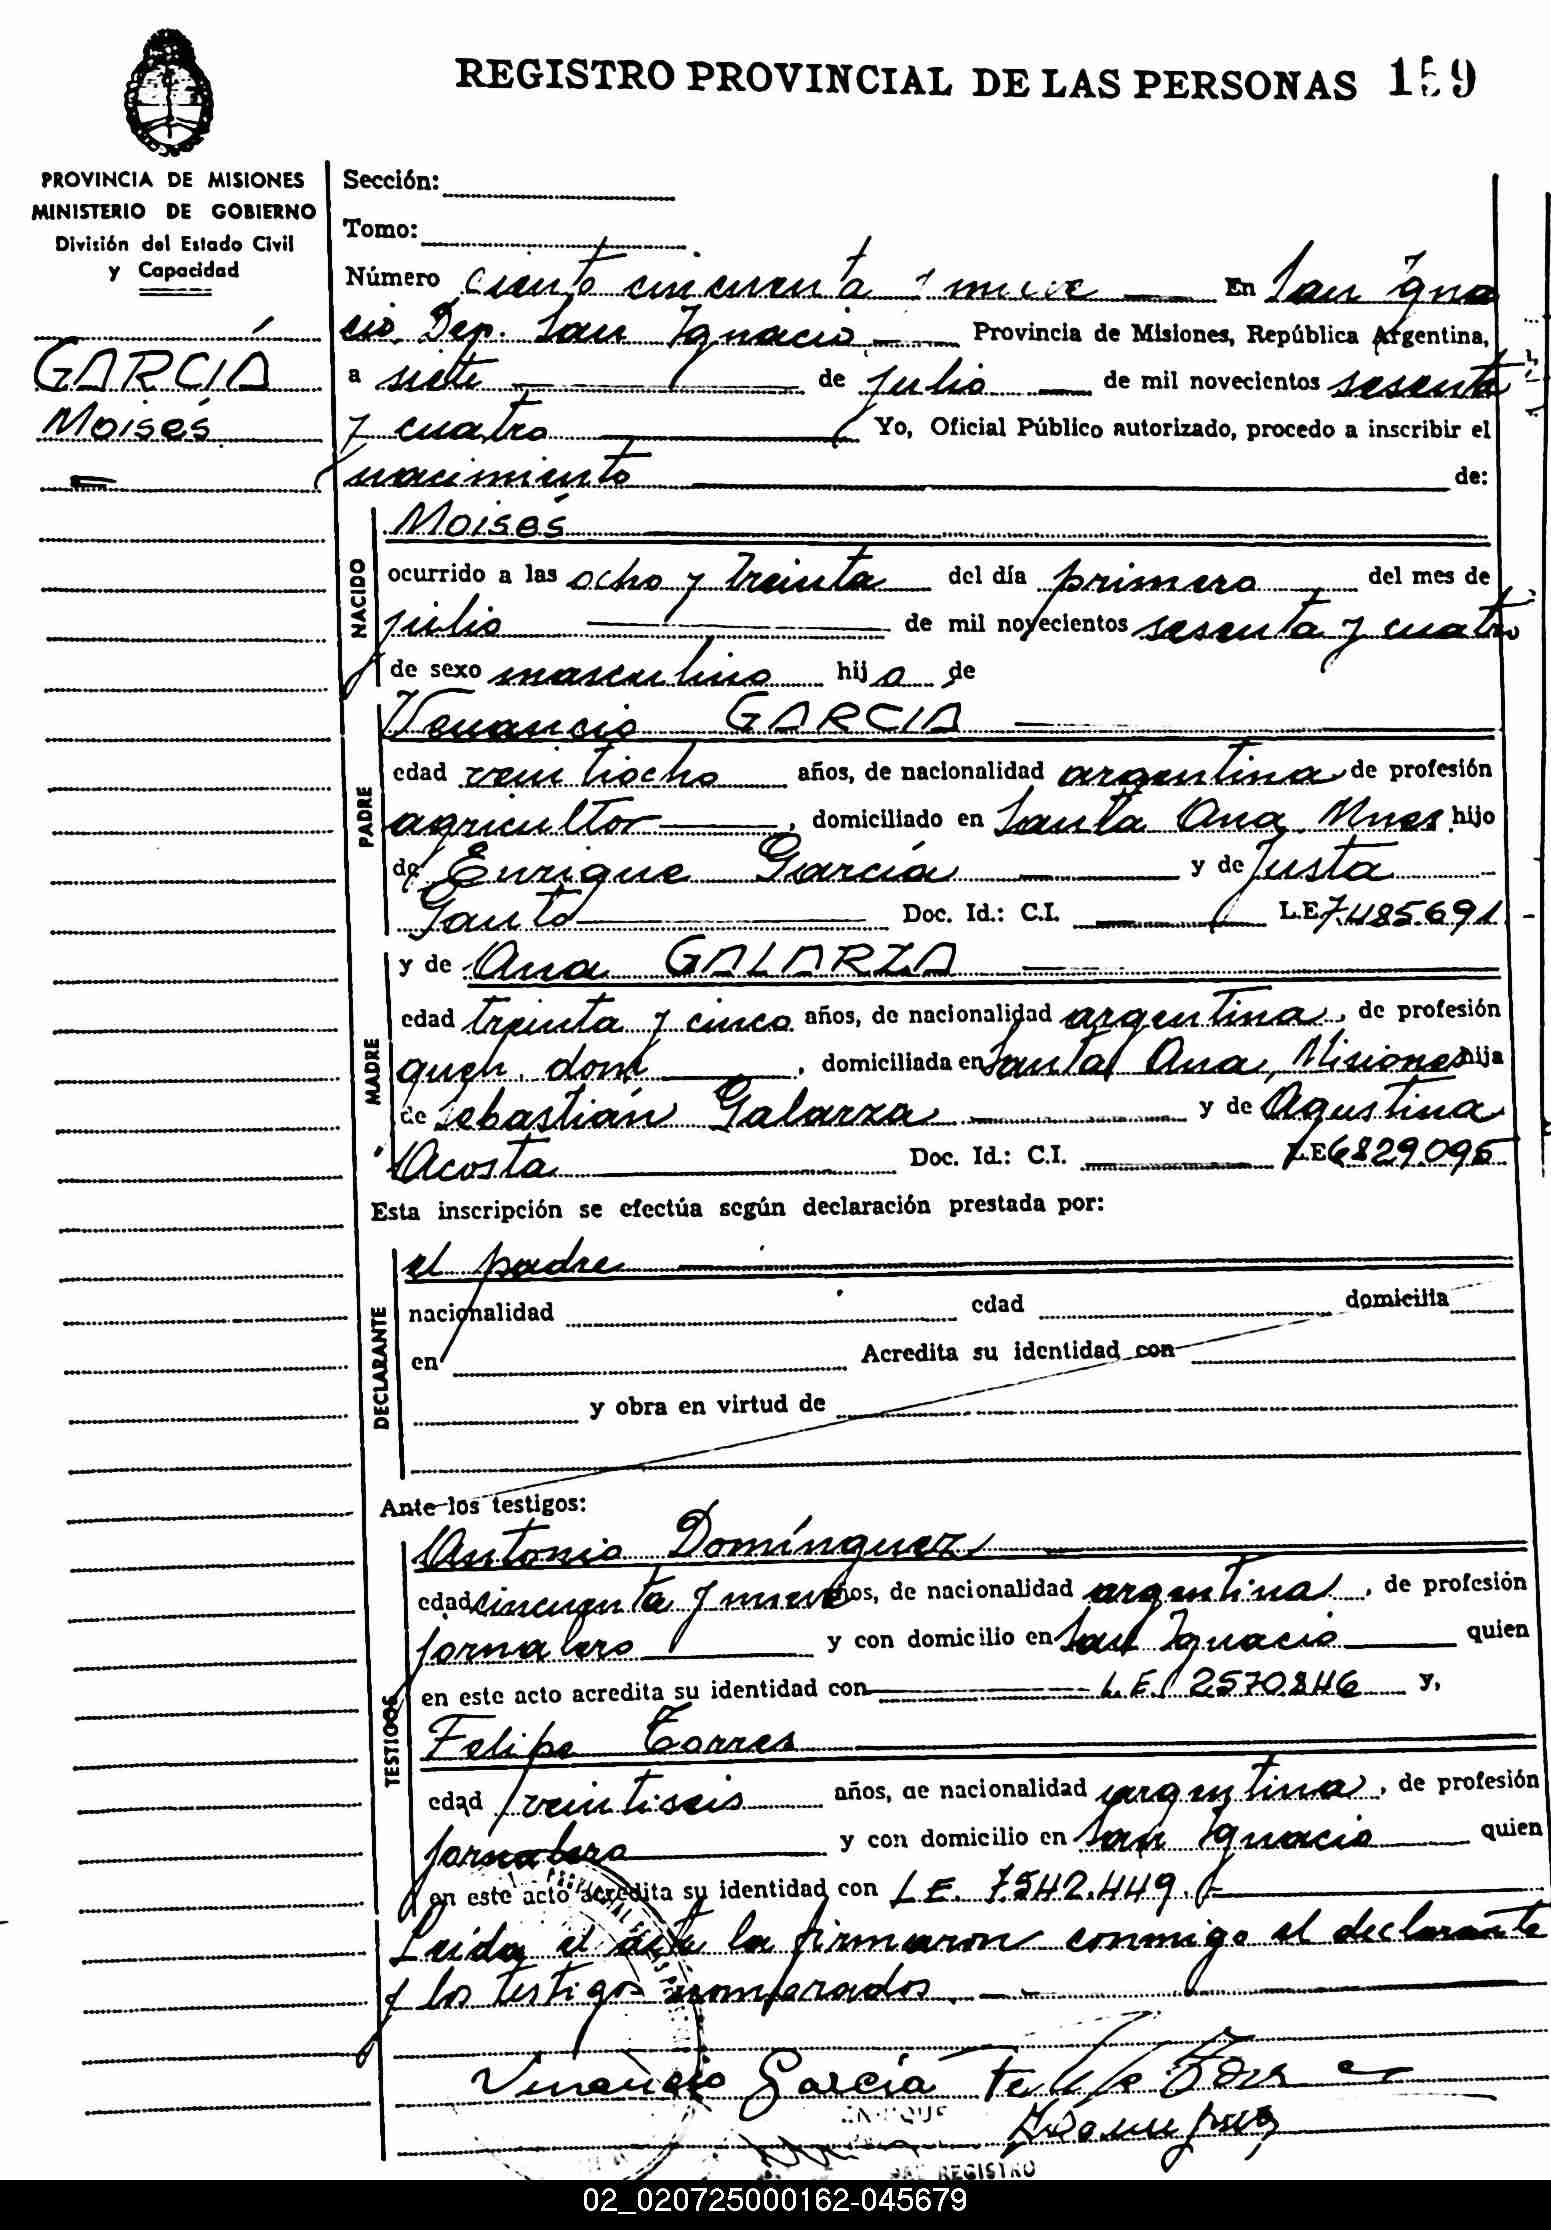 REGISTRO PROVINCIAL DE LAS PERSONAS 159
PROVINCIA DE MISIONES
MINISTERIO DE GOBIERNO
División del Estado Civil
y Capacidad
GARCÍA
Moisés
Sección:
Tomo:
Número ciento cincuenta y nueve En San Igna
cio, Dep. San Ignacio, Provincia de Misiones, República Argentina,
a siete de julio de mil novecientos sesenta
y cuatro Yo, Oficial Público autorizado, procedo a inscribir el
nacimiento de:
NACIDO
Moisés
ocurrido a las ocho y treinta del día primero del mes de
julio de mil novecientos sesenta y cuatro
de sexo masculino hijo de
PADRE
Venancio GARCÍA
edad veintiocho años, de nacionalidad argentina de profesión
agricultor, domiciliado en Santa Ana, Mnes hijo
de Enrique García y de Justa
Doc. Id.: C.I. L.E. 7.485.691
MADRE
y de Ana GALARZA
edad treinta y cinco años, de nacionalidad argentina, de profesión
queh. dom, domiciliada en Santa Ana, Misiones hija
de Sebastián Galarza y de Agustina
Acosta Doc. Id.: C.I. L.E. 6.829.095
Esta inscripción se efectúa según declaración prestada por:
DECLARANTE
el padre
nacionalidad edad domicilia
en Acredita su identidad con
y obra en virtud de
Ante los testigos:
TESTIGOS
Antonio Domínguez
edad cincuenta y nueve años, de nacionalidad argentina, de profesión
jornalero y con domicilio en San Ignacio quien
en este acto acredita su identidad con L.E. 2570846 y,
Felipe Torres
edad veintiseis años, de nacionalidad argentina, de profesión
jornalero y con domicilio en San Ignacio quien
en este acto acredita su identidad con L.E. 7.542.449.
Leida el acta la firmaron conmigo el declarante
y los testigos nombrados.
Venancio García Felipe Torres
REGISTRO
02_020725000162-045679